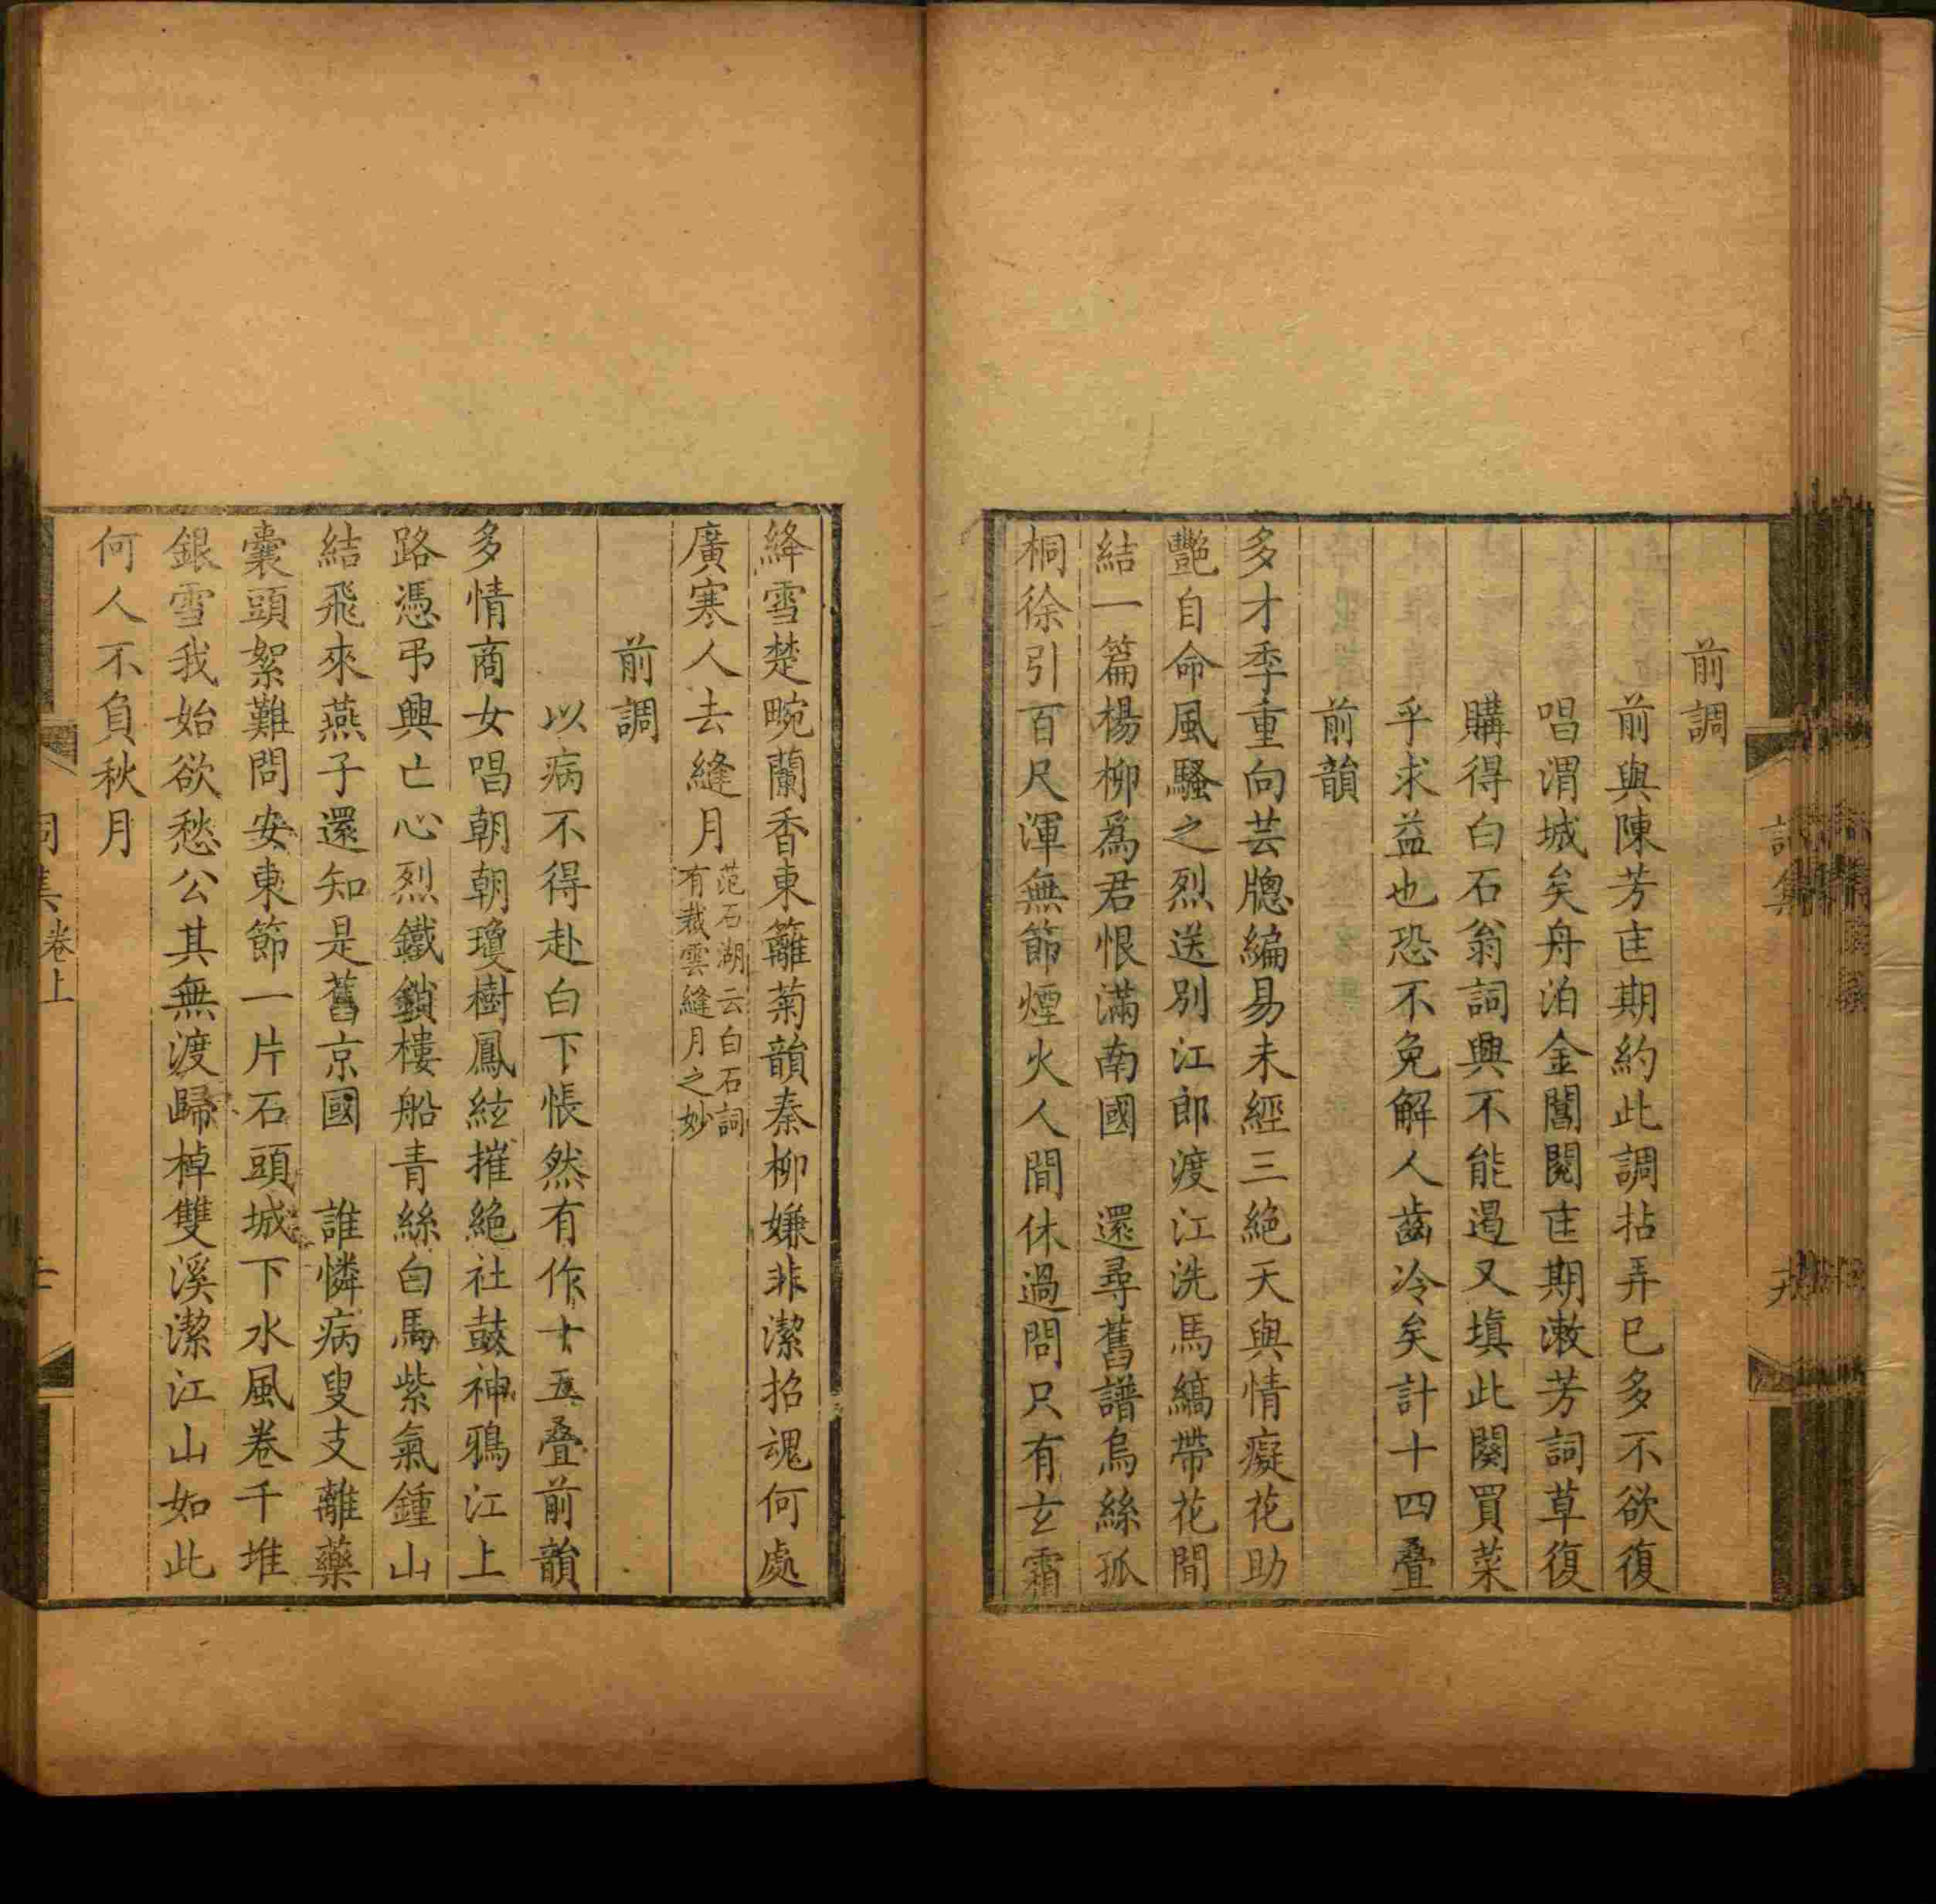 前調
前與陳芳㐀期約此調拈弄巳多不欲復
唱渭城矣舟泊金閶閱㐀期潄芳詞草復
購得白石翁詞興不能遏又塡此闋買菜
乎求益也恐不免解人齒冷矣計十四叠
前韻
多才季重向芸牕編易未經三絕天與情癡花助
艷自命風騷之烈送別江郎渡江洗馬縞帶花間
結一篇楊柳爲君恨滿南國　還尋舊譜烏絲孤
桐徐引百尺渾無節煙火人間休過問只有玄霜
絳雪楚畹蘭香東籬菊韻秦柳嫌非潔招魂何處
廣寒人去縫月范石湖云白石詞
有裁雲縫月之妙
前調
以病不得赴白下悵然有作十五叠前韻
多情商女唱朝朝瓊樹鳳絃摧絕社鼓神鴉江上
路憑弔興亡心烈鐵鎖樓船青絲白馬紫氣鍾山
結飛來燕子還知是舊京國　誰憐病叟支離藥
囊頭絮難問安東節一片石頭城下水風卷千堆
銀雪我始欲愁公其無渡歸棹雙溪潔江山如此
何人不負秋月
詞集卷上